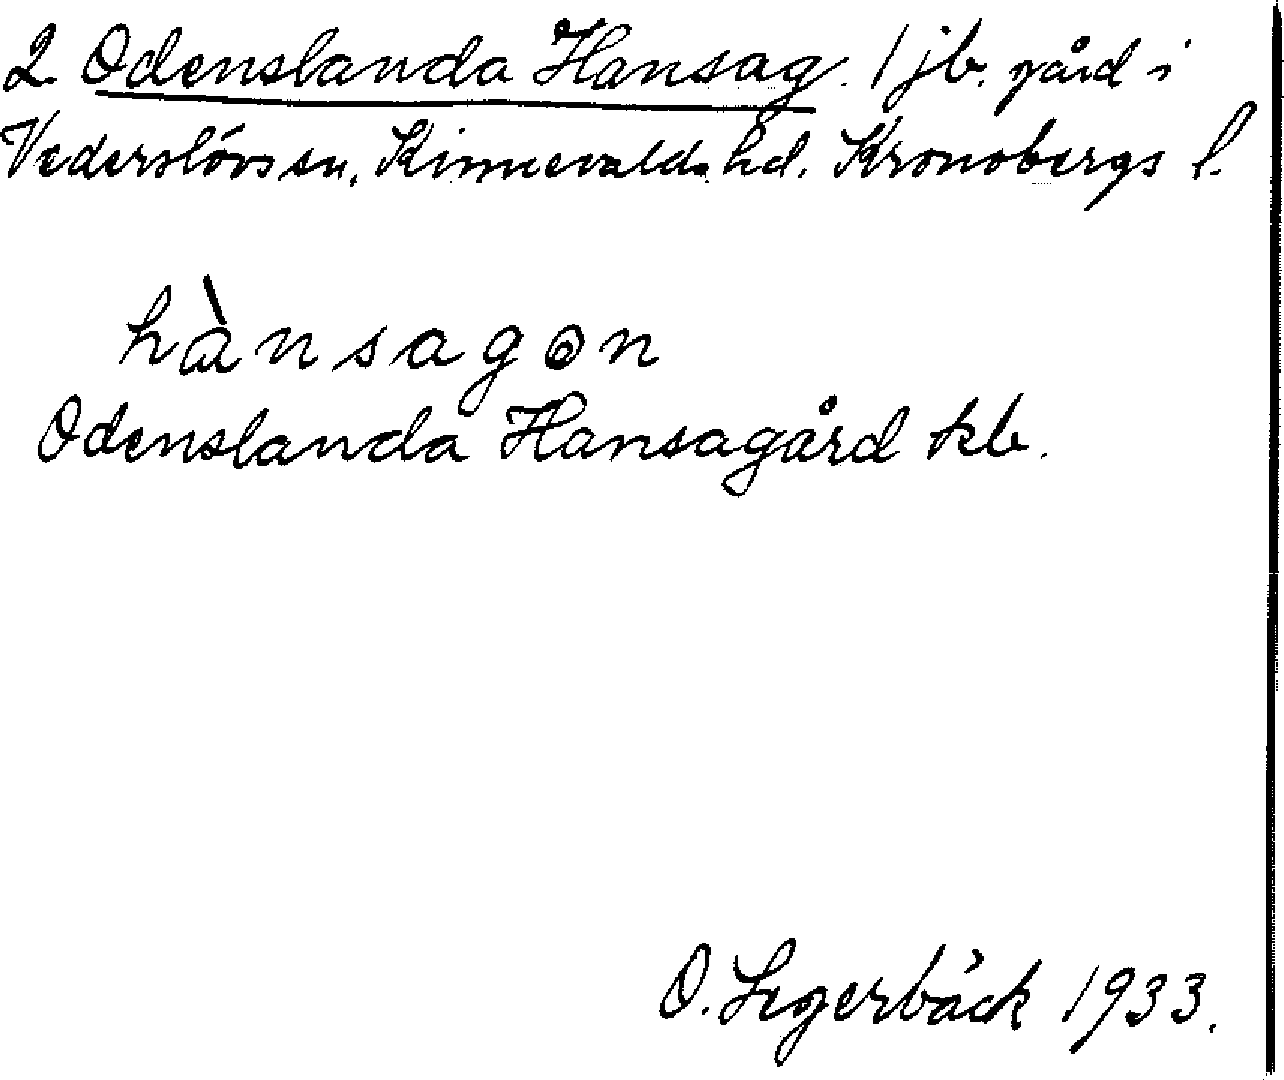 2 Odenslanda Hansag. 1 jb. gård i
Vederslövs sn, Kinnevalds hd. Kronobergs l.
hànsagɵn
Odenslanda Hansagård kb.
O. Segerbäck 1933.